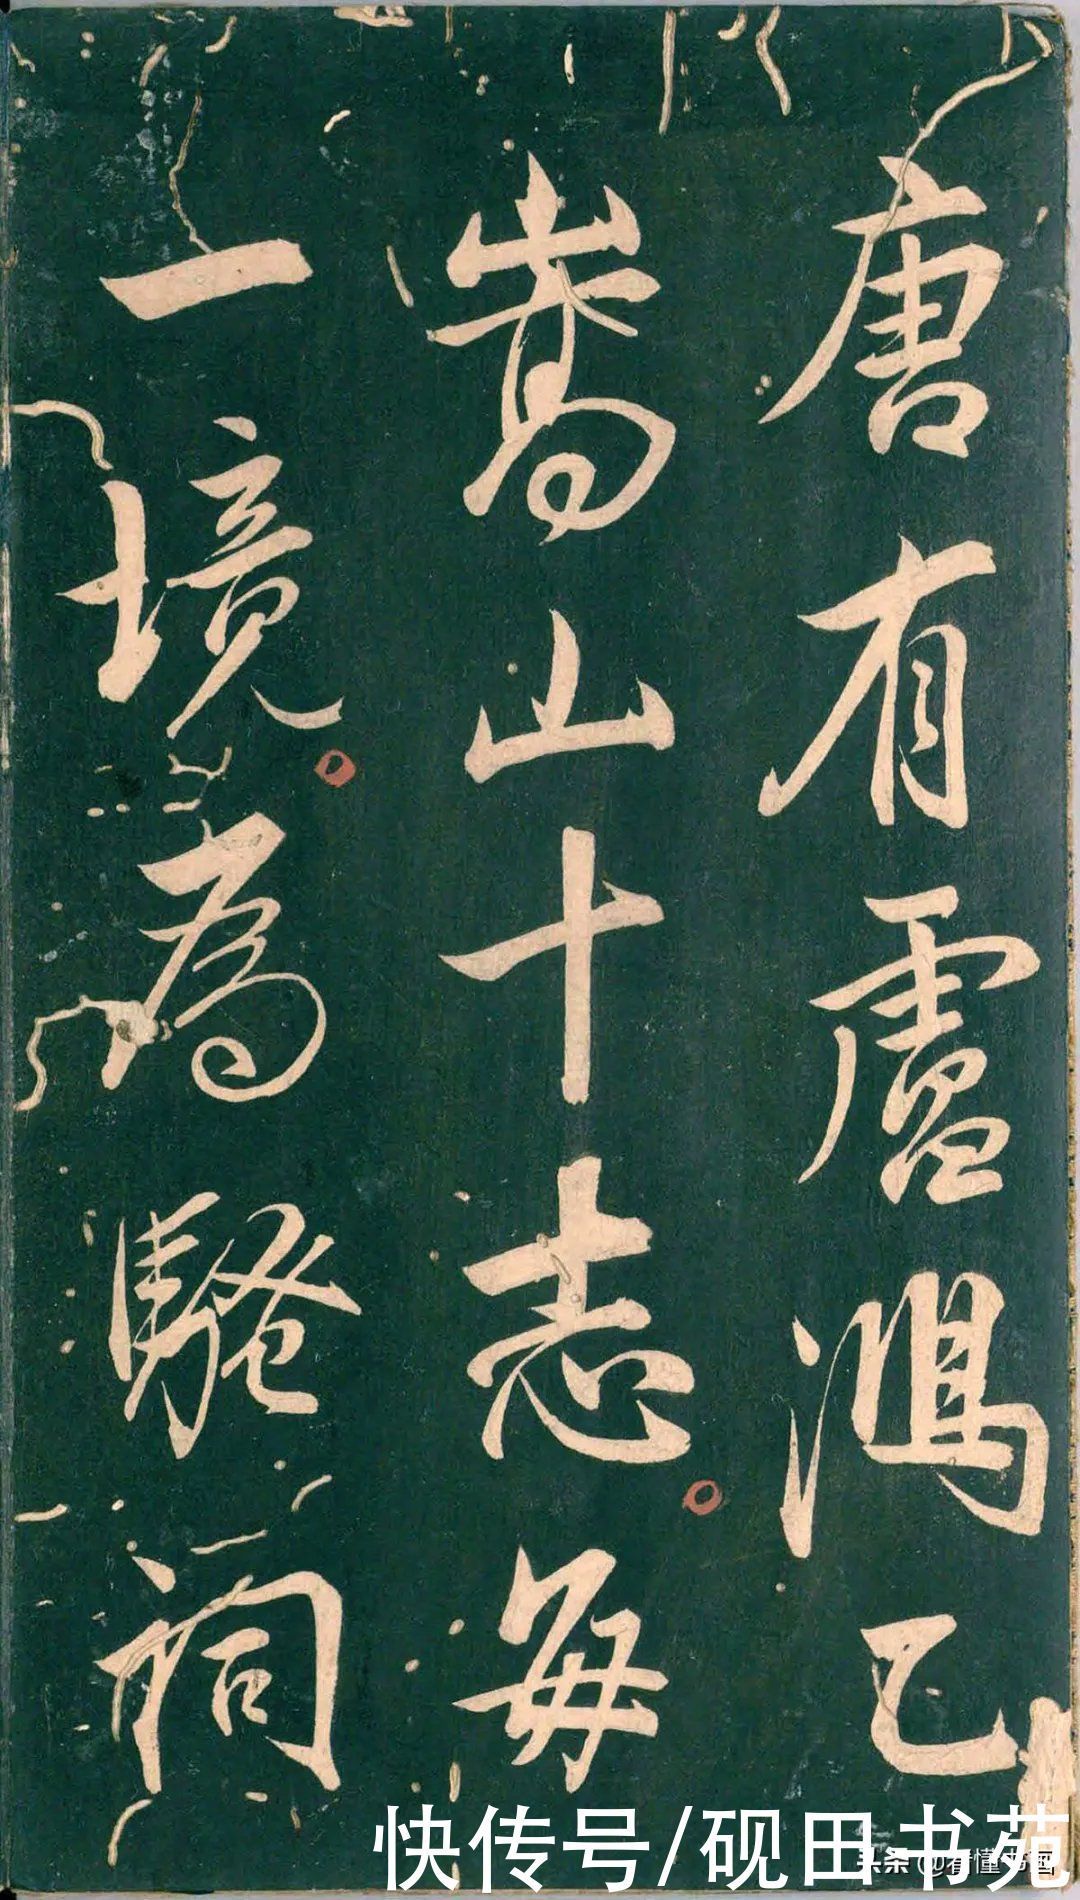 唐有盧鴻乙
嵩山十志每
一境為騷詞
快传号/砚田书苑
头条 @看懂书画